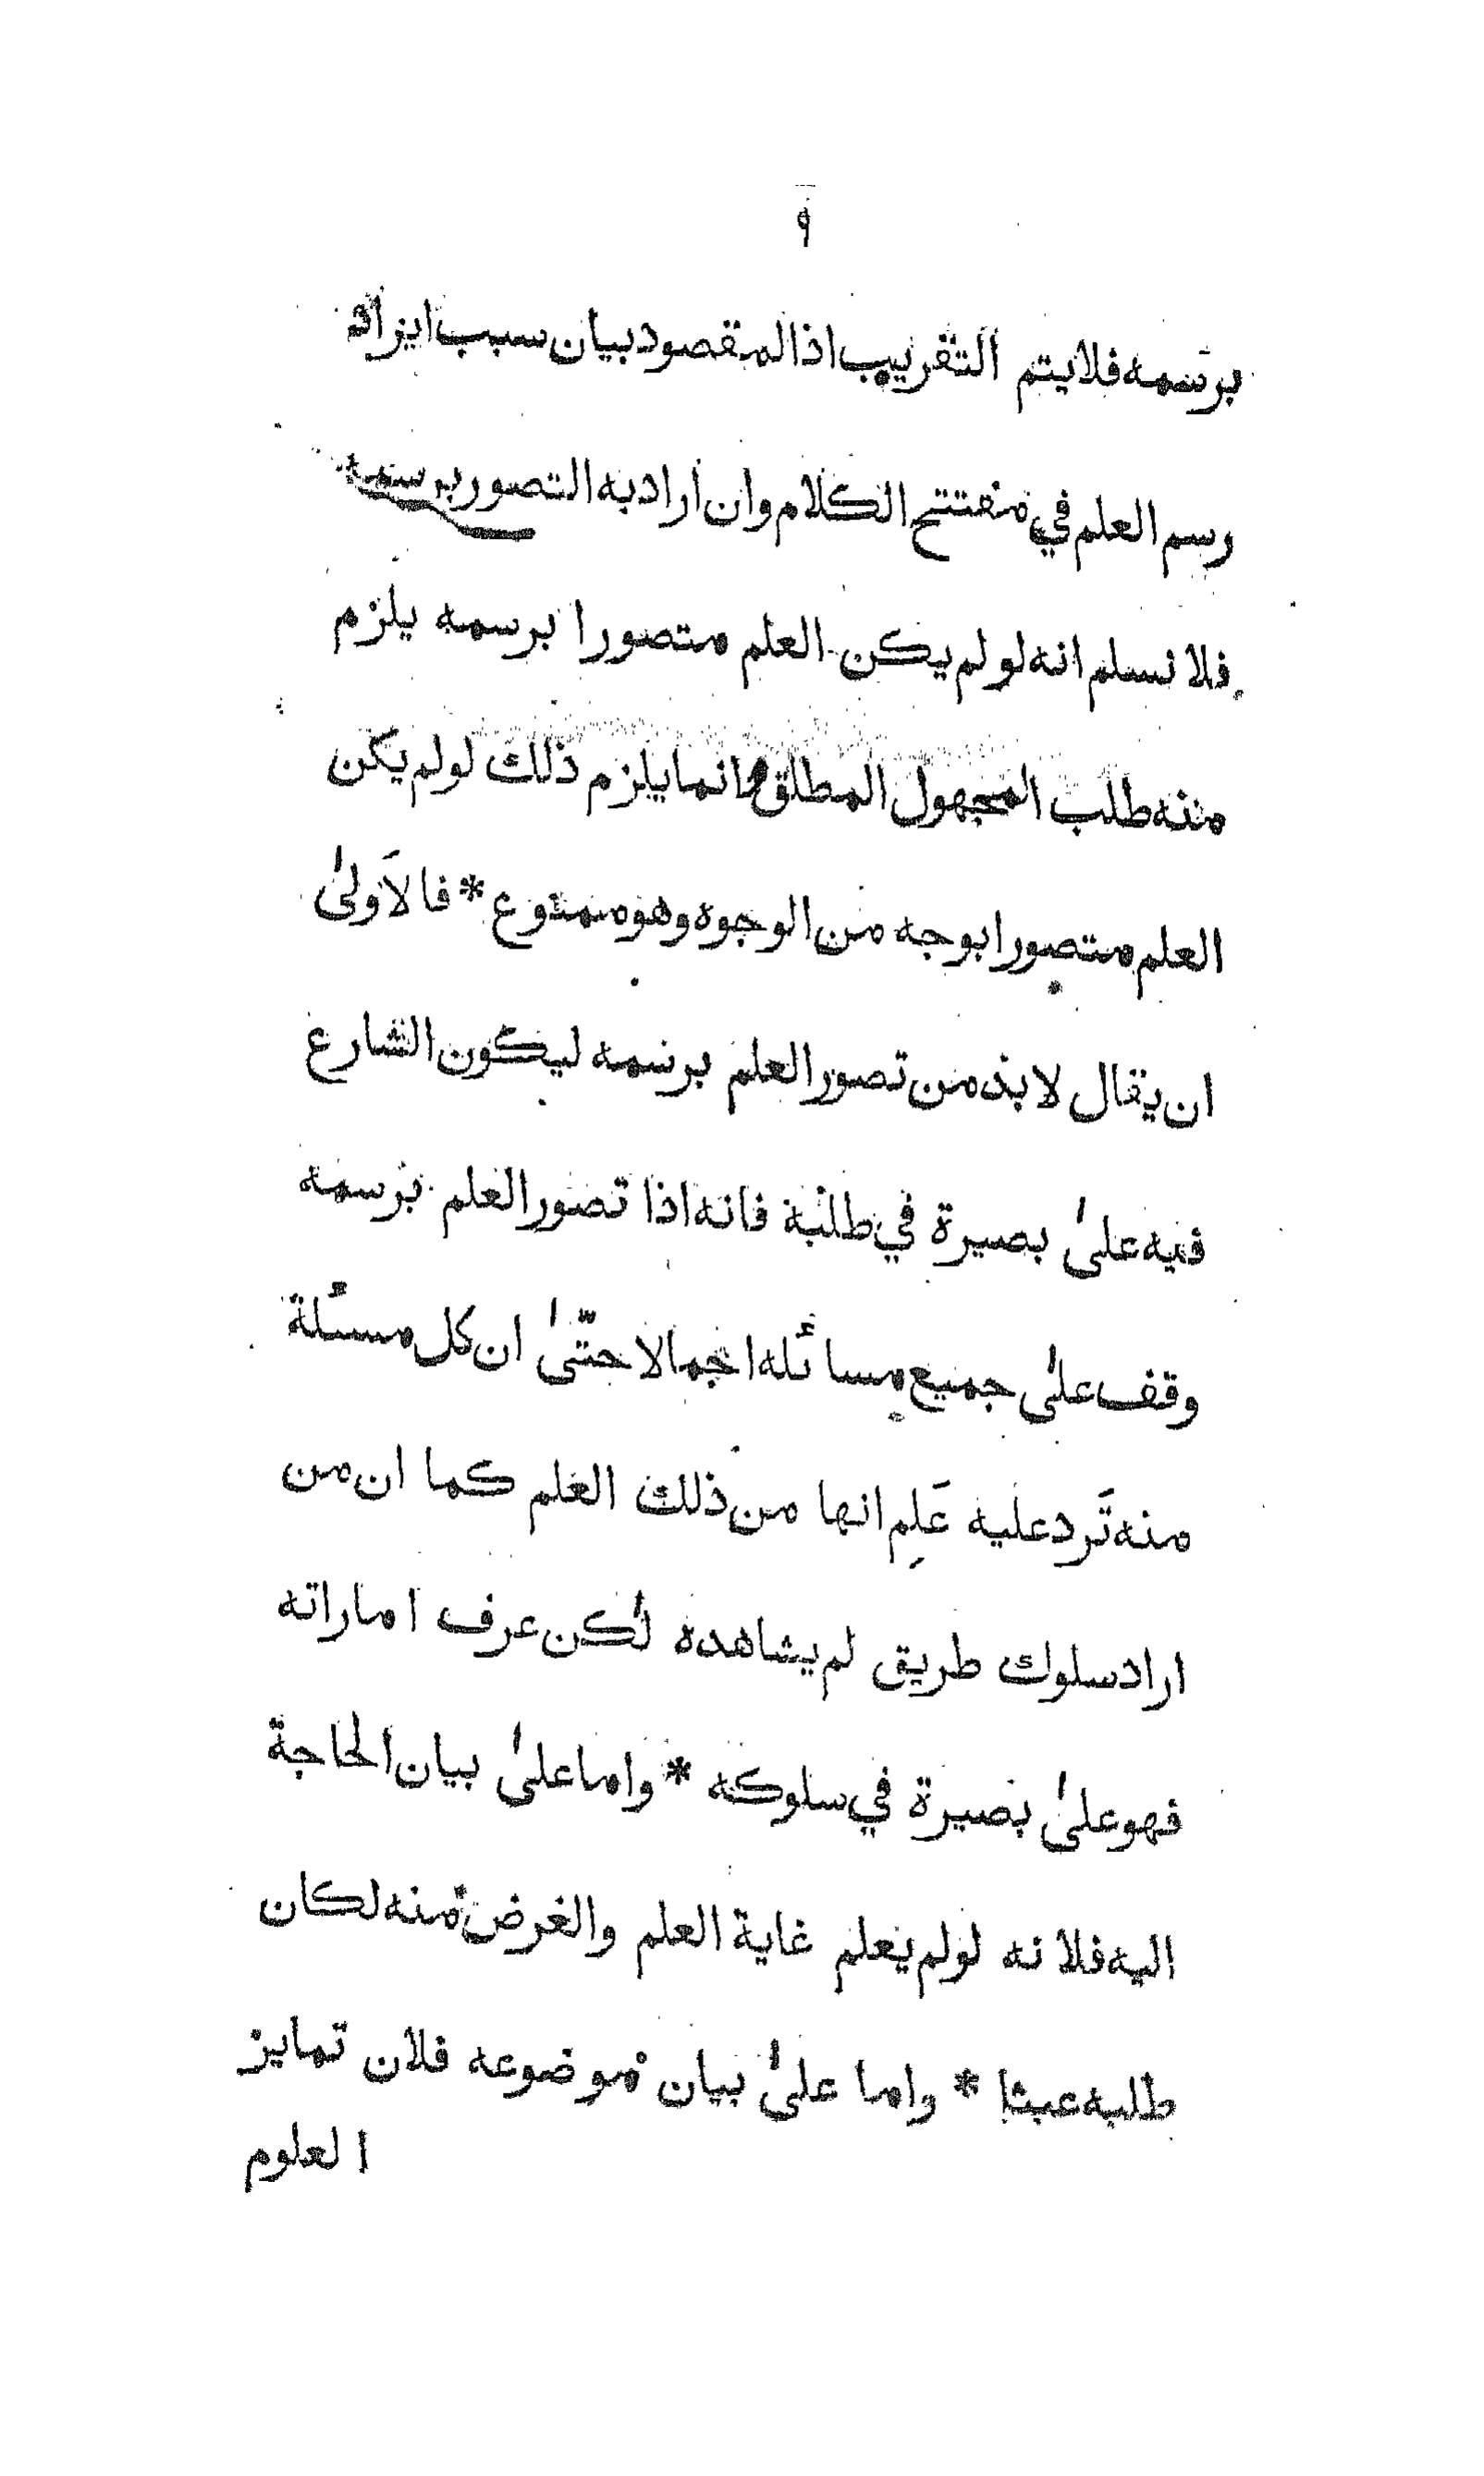 ٩
برسمه فلا يتم التقريب اذ المقصود بيان سبب ايراد
رسم العلم في مفتتح الكلام وان اراد به التصور برسمه
فلا نسلم انه لو لم يكن العلم متصورا برسمه يلزم
منه طلب المجهول المطلق وانما يلزم ذلك لو لم يكن
العلم متصورا بوجه من الوجوه وهو ممنوع * فالاَولىٰ
ان يقال لا بد من تصور العلم برسمه ليكون الشارع
فيه علىٰ بصيرة في طلبه فانه اذا تصور العلم برسمه
وقف علىٰ جميع مسائله اجمالا حتّىٰ ان كل مسئلة
منه تَرد عليه عَلِم انها من ذلك العلم كما ان من
اراد سلوك طريق لم يشاهده لٰكن عرف اماراته
فهو علىٰ بصيرة في سلوكه * واما علىٰ بيان الحاجة
اليه فلانه لو لم يعلم غاية العلم والغرض منه لكان
طلبه عبثا * واما علىٰ بيان موضوعه فلان تمايز
العلوم